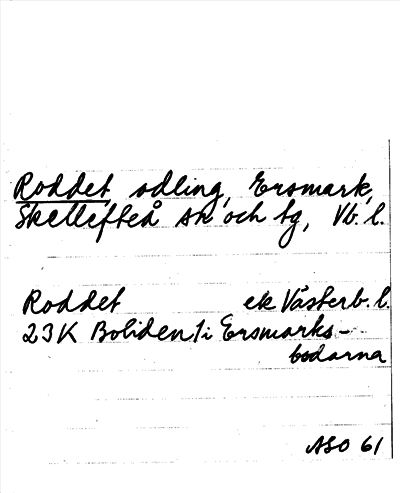 Roddet, odling, Ersmark,
Skellefteå sn och tg, Vb. l.
Roddet ek Västerb. l.
23K Boliden 1i Ersmarks-
bodarna
ASO 61